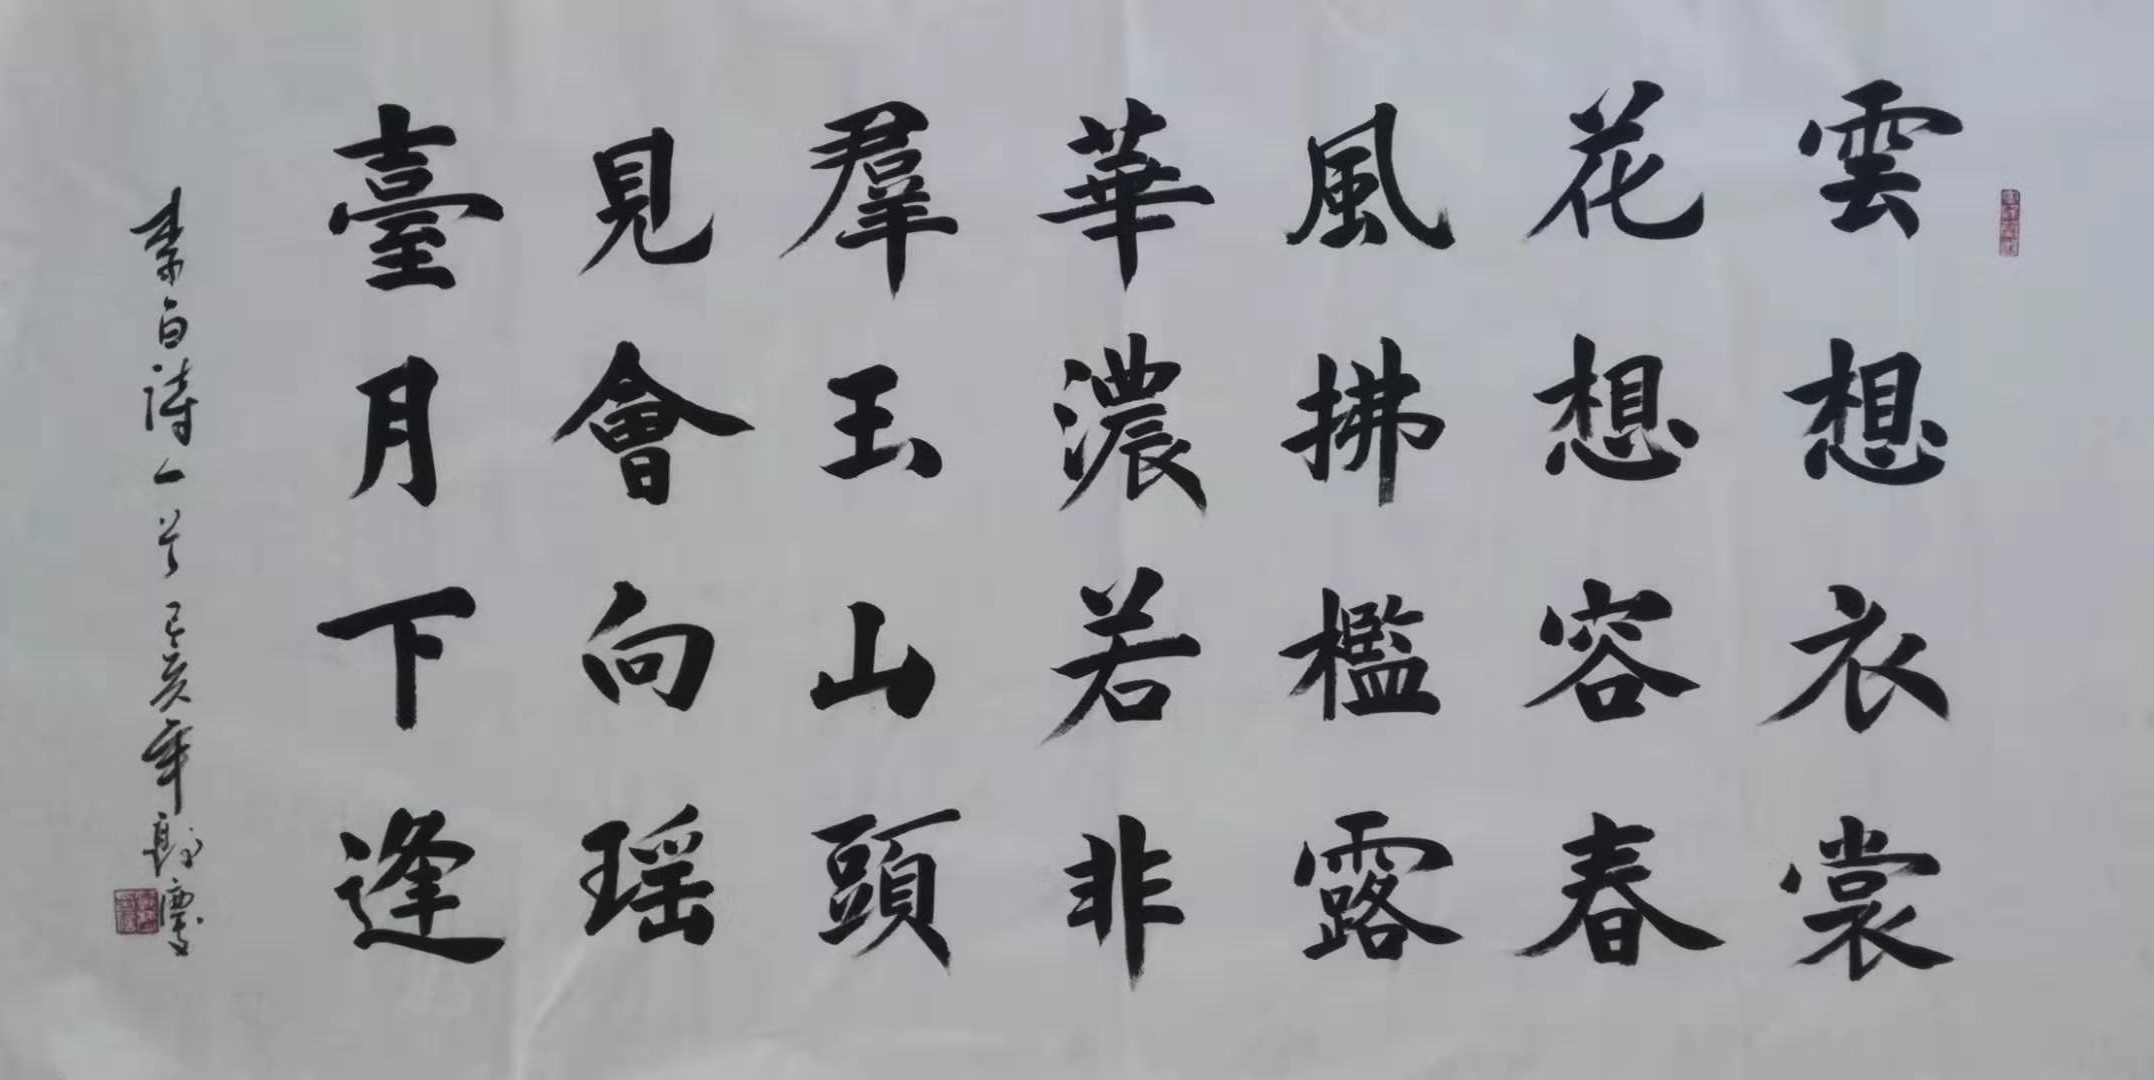 雲想衣裳
花想容春
風拂檻露
華濃若非
羣玉山頭
見會向瑶
臺月下逢
李白詩一首 己亥年